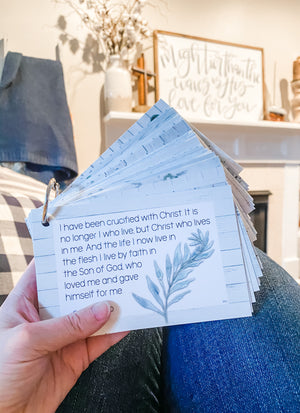 Mightier than the
waves of the sea
love for you
I have been crucified with Christ. It is
no longer I who live, but Christ who lives
in me. And the life I now live in
the flesh I live by faith in
the Son of God, who
loved me and gave
himself for me.